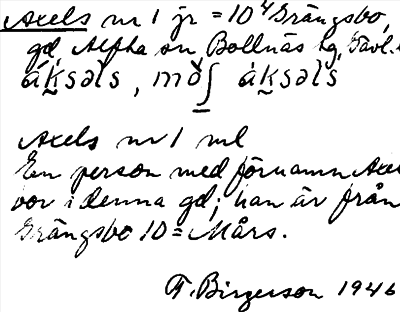 Axels nr 1 jr = 10⁴ Grängsbo,
gd, Alfta sn Bollnäs tg, Gävl.
áksəls, má̆ʃ áksəls
Axels nr 1 ml
En person med förnamn Axe
bor i denna gd; han är från
Grängsbo 10 = Mårs.
T. Birgerson 1946